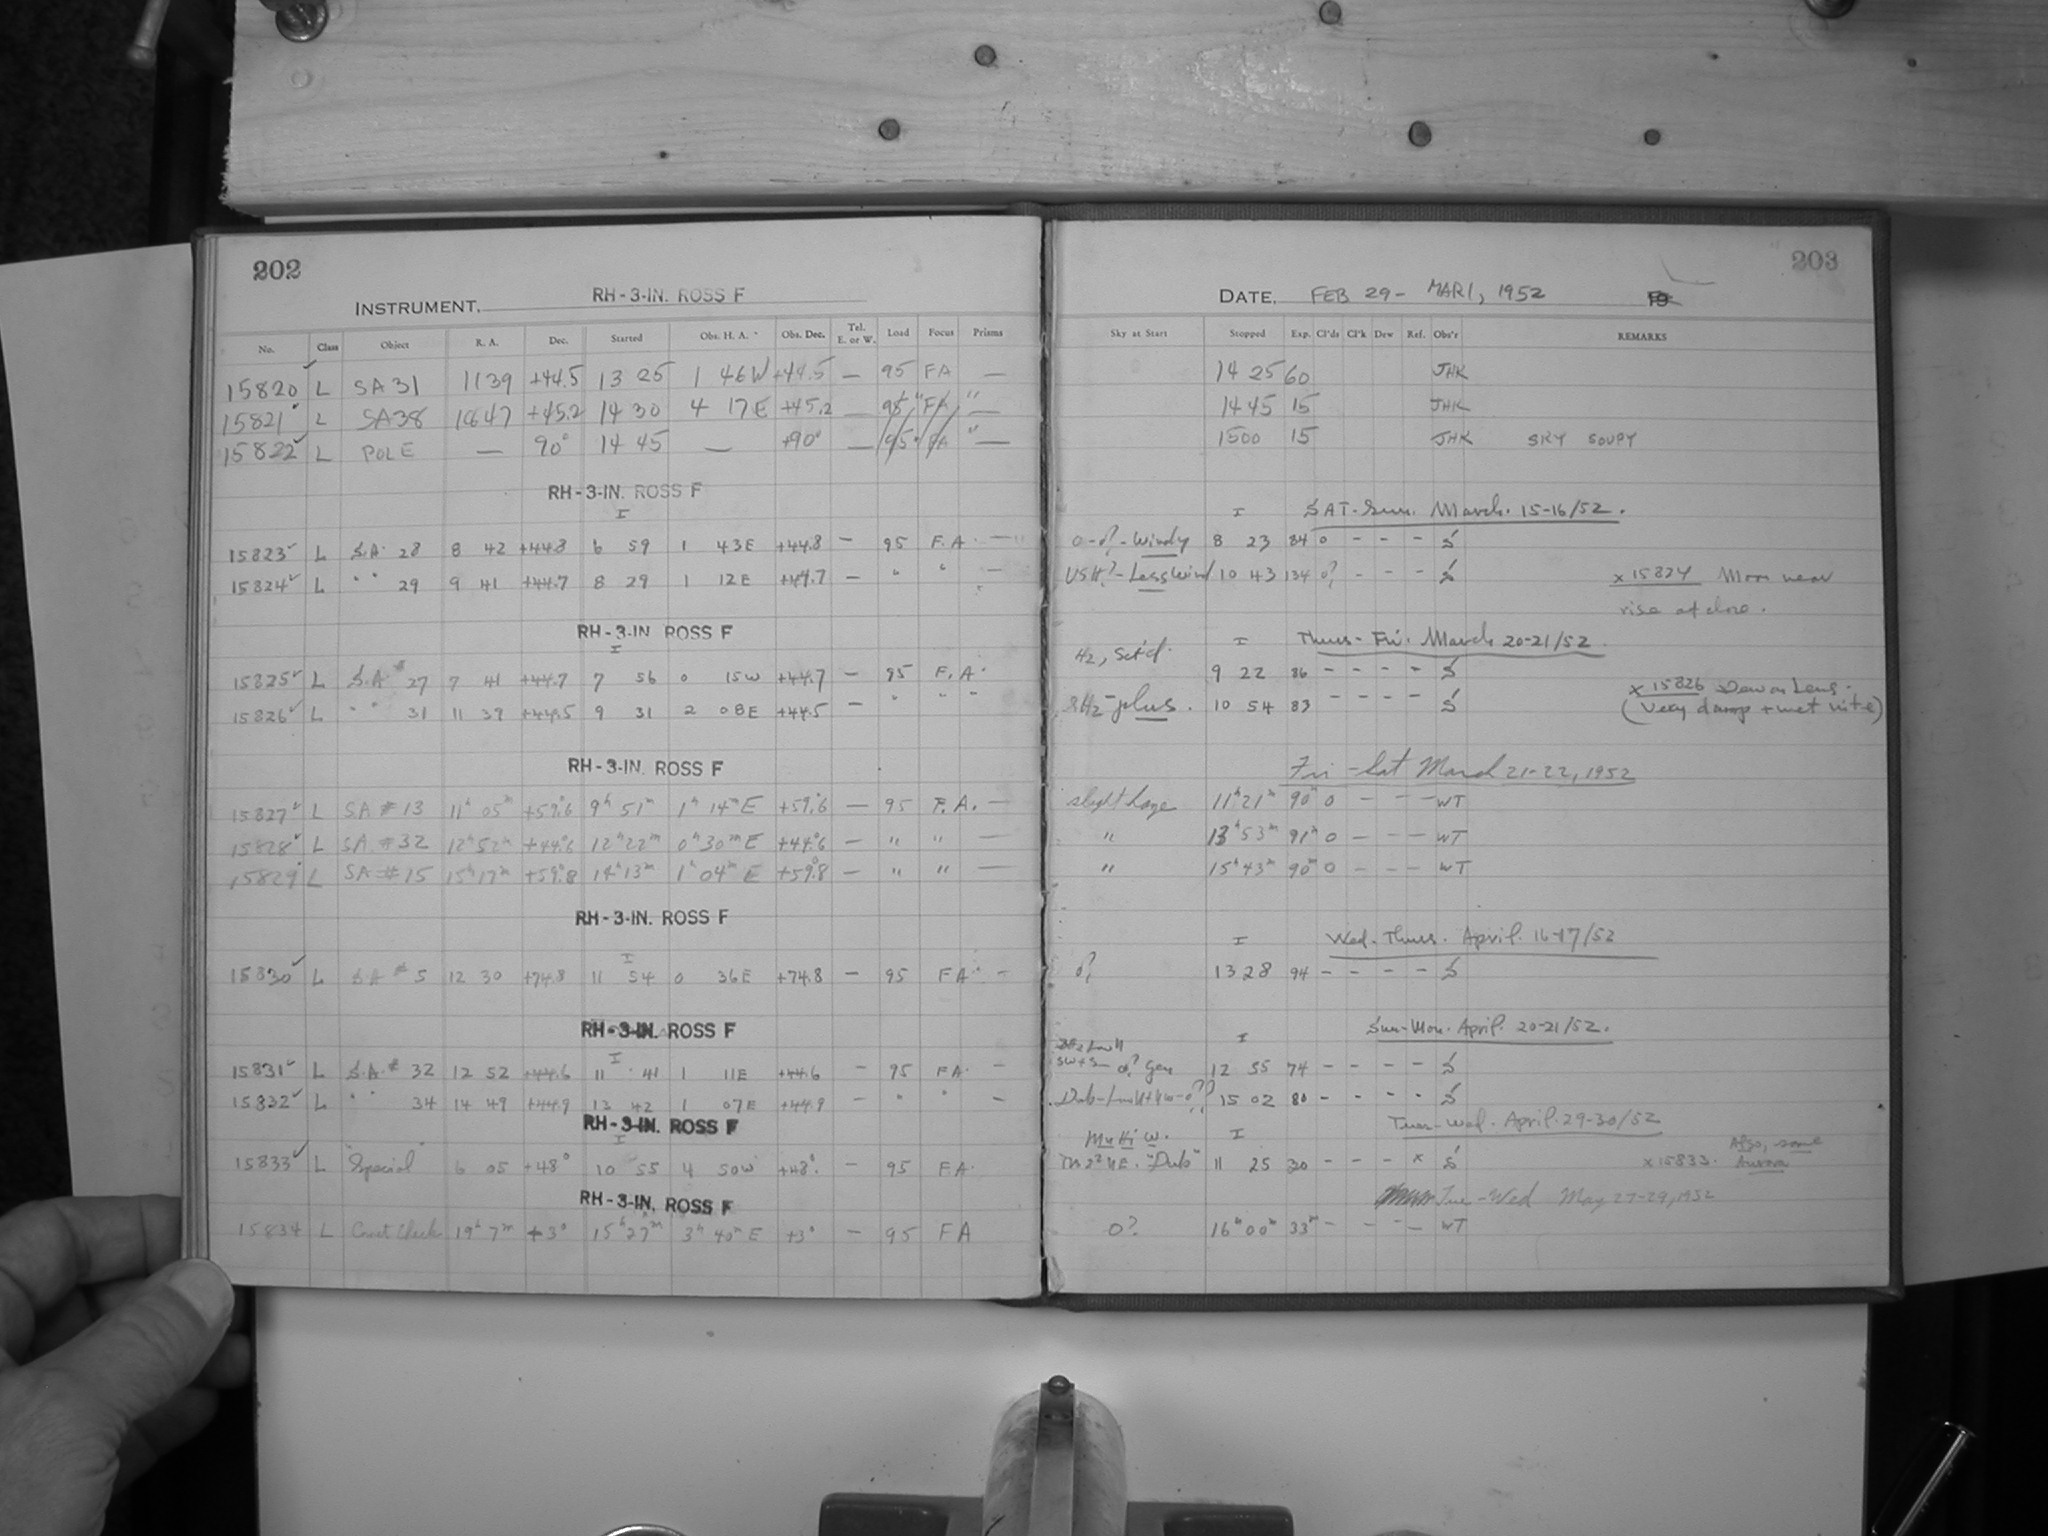 202
INSTRUMENT, RH-3-IN. ROSS F
No. Class Object R. A. Dec. Started Obs. H. A. Obs. Dec. Tel. E. or W. Load Focus Prisms
15820 L SA 31 11 39 +44.5 13 25 1 46W +44.5 — 95 FA —
15821 L SA38 1647 +45.2 14 30 4 17E +45.2 — 95 " FA " —
15822 L POLE — 90° 14 45 — +90° — 95 FA " —
RH-3-IN. ROSS F
I
15823 L S.A. 28 8 42 +44.8 6 59 1 43E +44.8 — 95 F.A. —
15824 L " " 29 9 41 +44.7 8 29 1 12E +44.7 — " " —
RH-3-IN ROSS F
I
15825 L S.A # 27 7 41 +44.7 7 56 0 15W +44.7 — 95 F.A. "
15826 L " " 31 11 39 +44.5 9 31 2 08E +44.5 — " " "
RH-3-IN. ROSS F
15827 L SA # 13 11h 05m +59.°6 9h 51m 1h 14m E +59.°6 — 95 F.A. —
15828 L SA. # 32 12h 52m +44.°6 12h 22m 0h 30m E +44.°6 — " " —
15829 L SA # 15 15h 17m +59.°8 14h 13m 1h 04m E +59.°8 — " " —
RH-3-IN. ROSS F
I
15830 L S.A # 5 12 30 +74.8 11 54 0 36E +74.8 — 95 FA. —
RH-3-IN. ROSS F
I
15831 L S.A. # 32 12 52 +44.6 11 41 1 11E +44.6 — 95 FA. —
15832 L " " 34 14 49 +44.9 13 42 1 07E +44.9 — " " —
RH-3-IN. ROSS F
I
15833 L "Special" 6 05 +48° 10 55 4 50W +48°. — 95 FA.
RH-3-IN. ROSS F
15834 L Check 19h 7m +3° 15h 27m 3h 40m E +3° — 95 FA
203
DATE, FEB 29 - MAR 1, 1952 19
Sky at Start Stopped Exp. Cl'ds Cl'k Dew Ref. Obs'r REMARKS
14 25 60 JHK
14 45 15 JHK
1500 15 JHK SKY SOUPY
I SAT-Sun. March. 15-16/52.
0-0?-Windy 8 23 84 0 - - - S
- Less Wind 10 43 134 0? - - - S x 15824 Moon near
rise at close.
I Thurs-Fri. March 20-21/52.
H2, Sct'd. 9 22 86 - - - - S
plus. 10 54 83 - - - - S x 15826 Dew on Lens.
(Very damp + wet nite)
Fri - Sat March 21-22, 1952
slight haze 11h 21m 90m 0 - - - WT
" 13h 53m 91m 0 - - - WT
" 15h 43m 90m 0 - - - WT
I Wed.-Thurs. April. 16-17/52
0? 13 28 94 - - - - S
I Sun-Mon. April. 20-21/52.
SW+S- 0? Gen 12 55 74 - - - - S
15 02 80 - - - - S
Tues-Wed. April. 29-30/52
I
"Dub" 11 25 30 - - - x S x 15833. Also, some
Aurora
Tue-Wed May 27-29, 1952
0? 16h 00m 33m - - - - WT